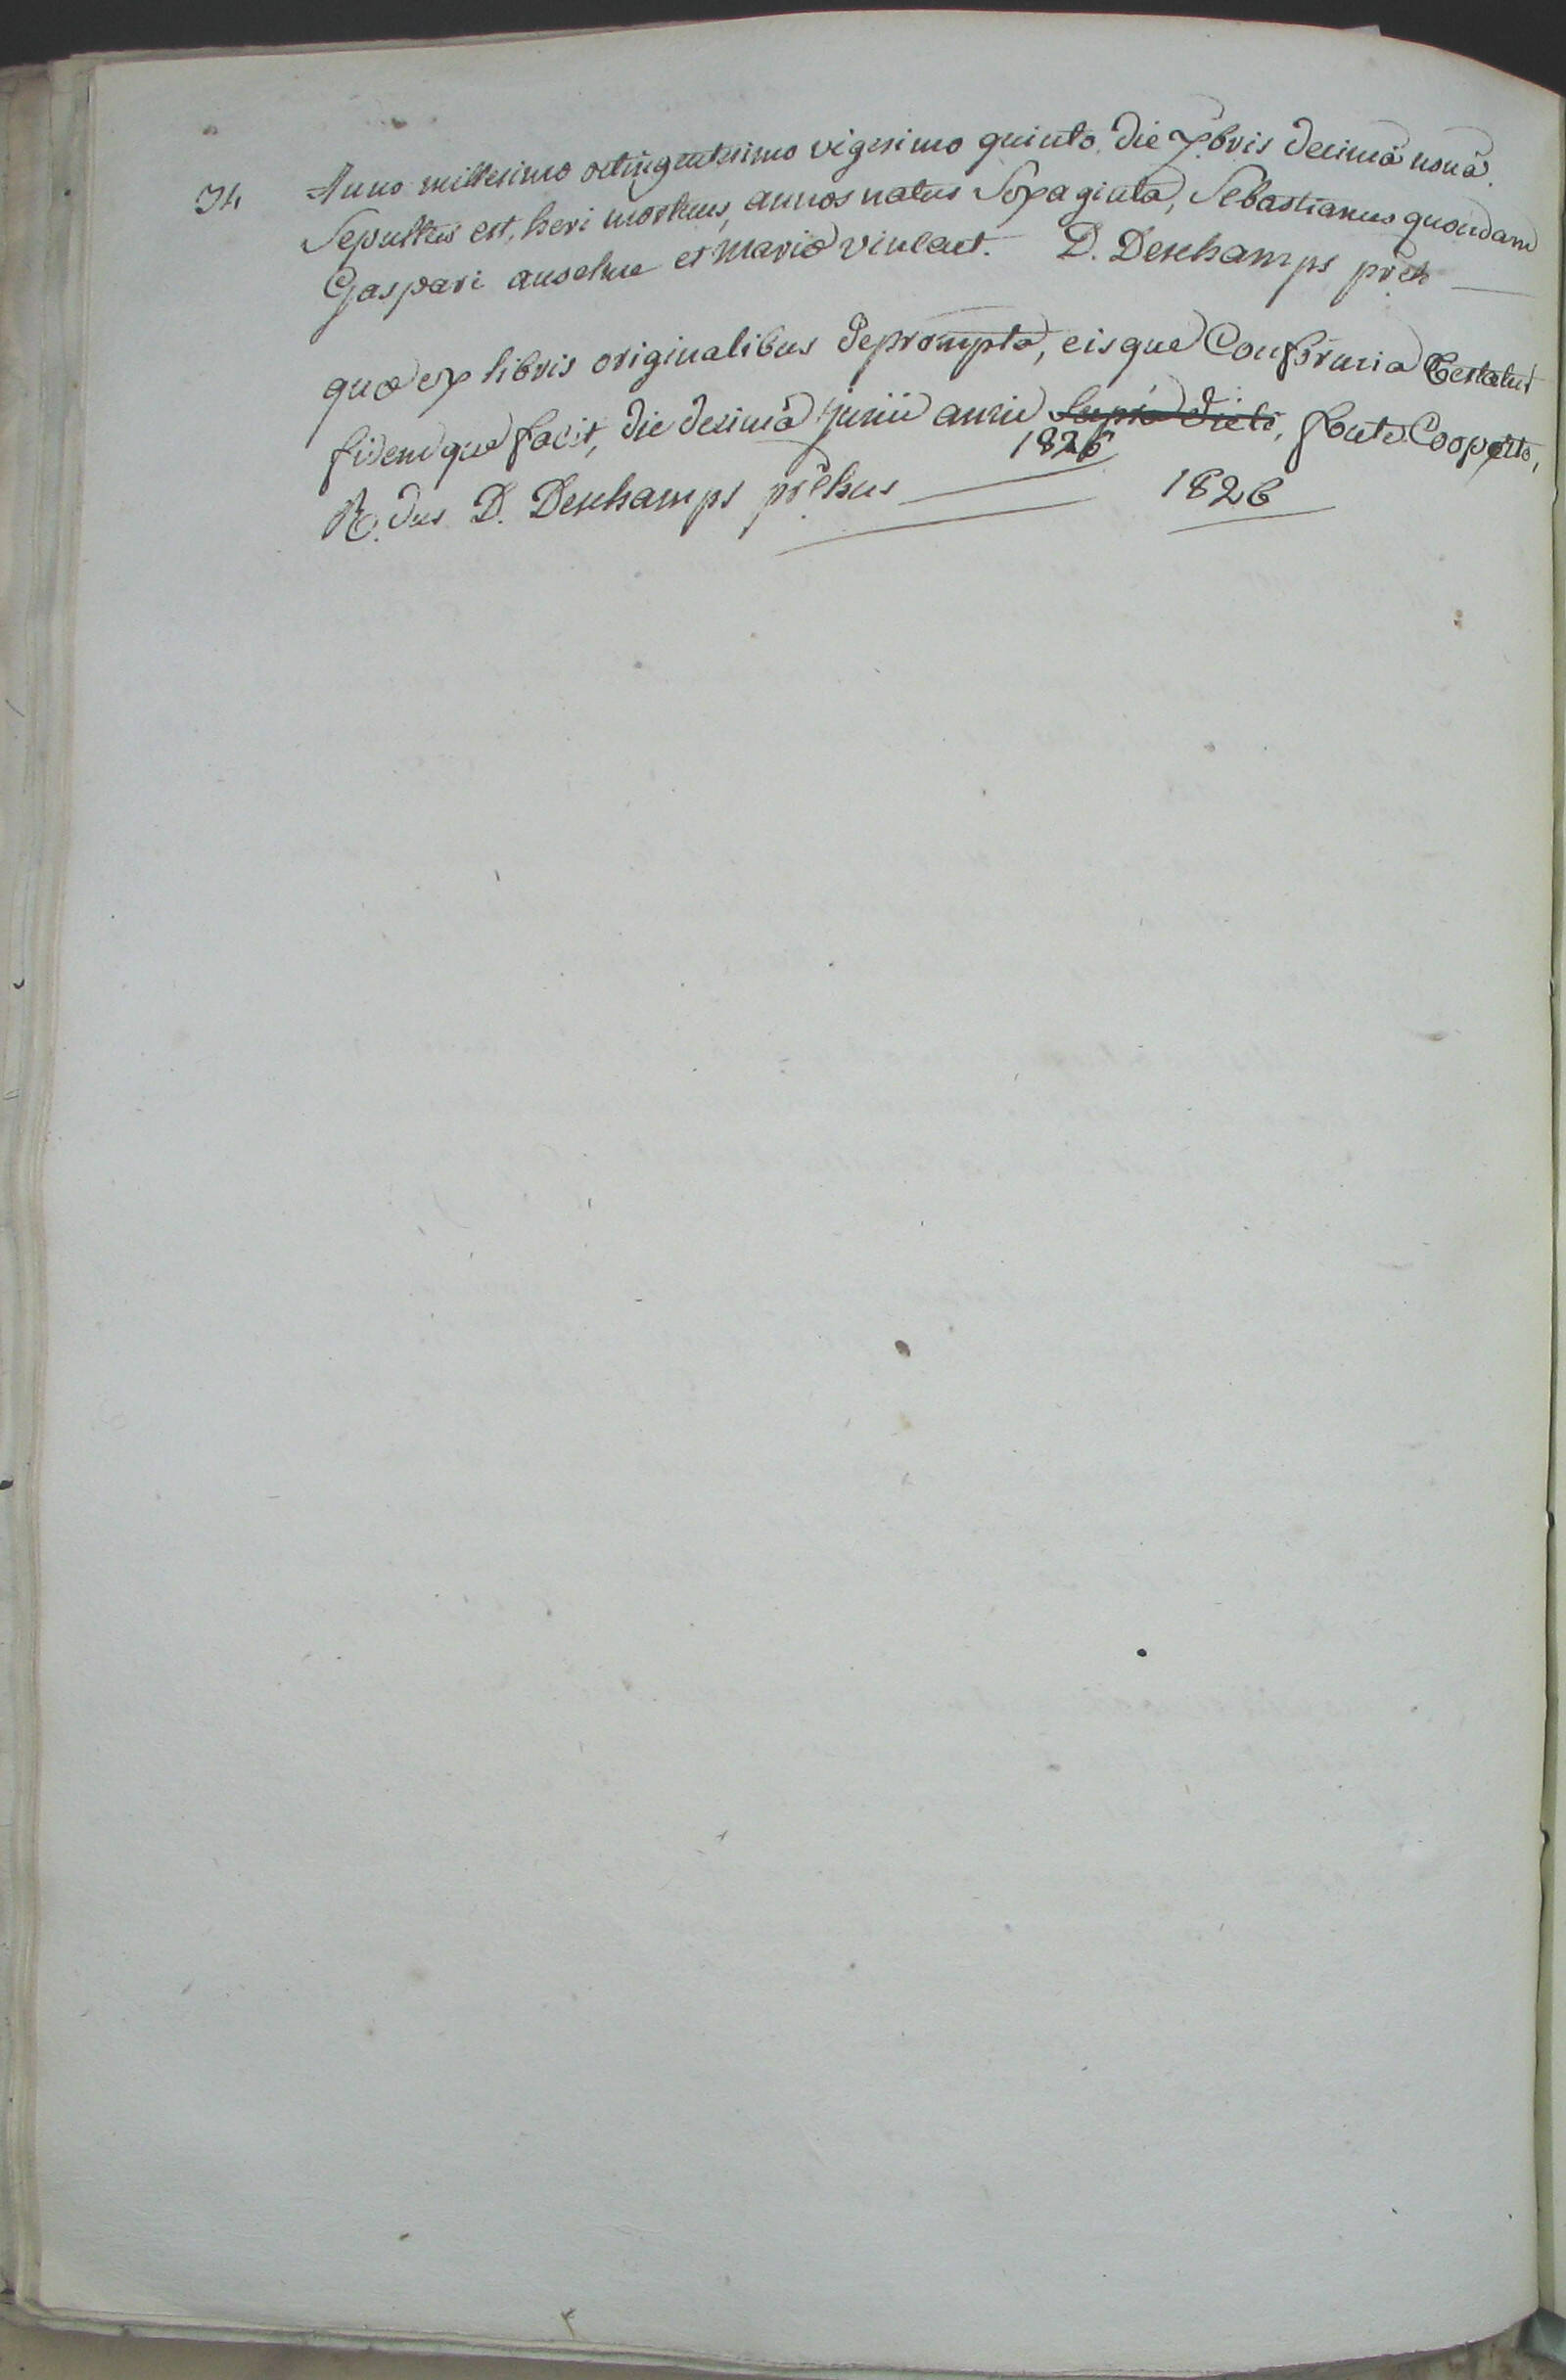 34 Anno millesimo octingentesimo vigesimo quinto die Xbris decimâ nonâ.
Sepultus est, heri mortuus, annos natus Sexaginta, Sebastianus quondam
Gaspari anselme et Maria vincent. D. Deschamps prêb
quæ ex libris originalibus deprompta, eisque Conformia testatur
fidemque facit, die decimâ junii anni supra dicti, fonte Cooperto,
1826
R. dus D. Deschamps prêbus 1826